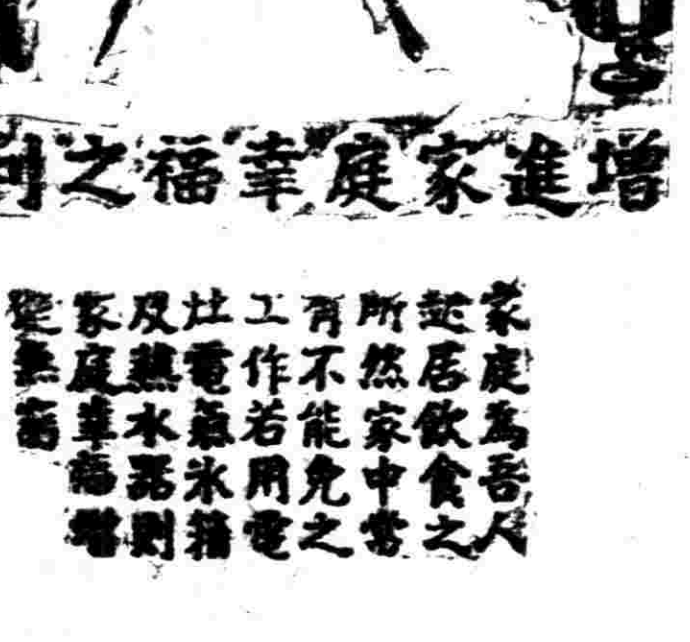 增進家庭幸福之利
家庭為吾人
起居飲食之
所然家中常
有不能免之
工作若用電
灶電氣氷箱
及熱水器則
家庭幸福增
進無窮